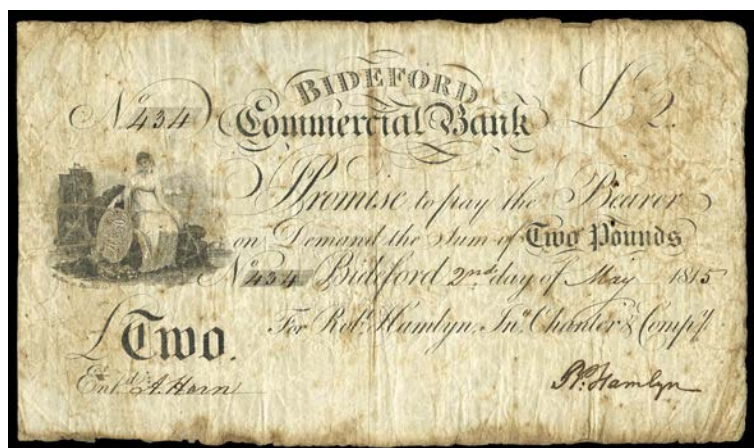 BIDEFORD
No 434 Commercial Bank £2.
I Promise to pay the Bearer
on Demand the Sum of Two Pounds
No 434 Bideford 2nd day of May 1815
For Robt. Hamlyn, Jno. Chanter & Compy.
£Two.
Entd. A. Harn
Rt. Hamlyn